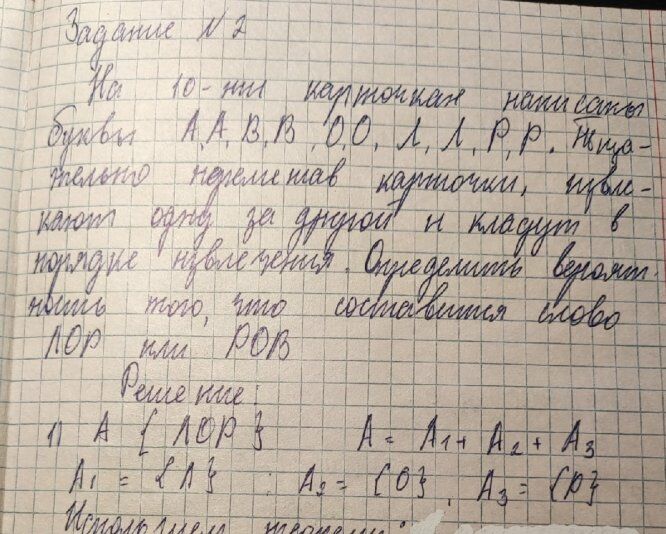 Задание N 2
На 10-ти карточках написаны
буквы А, А, В, В, О, О, Л, Л, Р, Р. Тща-
тельно перемешав карточки, извле-
кают одну за другой и кладут в
порядке извлечения. Определить вероят-
ность того, что составится слово
ЛОР или РОВ
Решение:
1) А { ЛОР } А = А₁ + А₂ + А₃
А₁ = {Л} ; А₂ = {О}, А₃ = {Р}
Используем